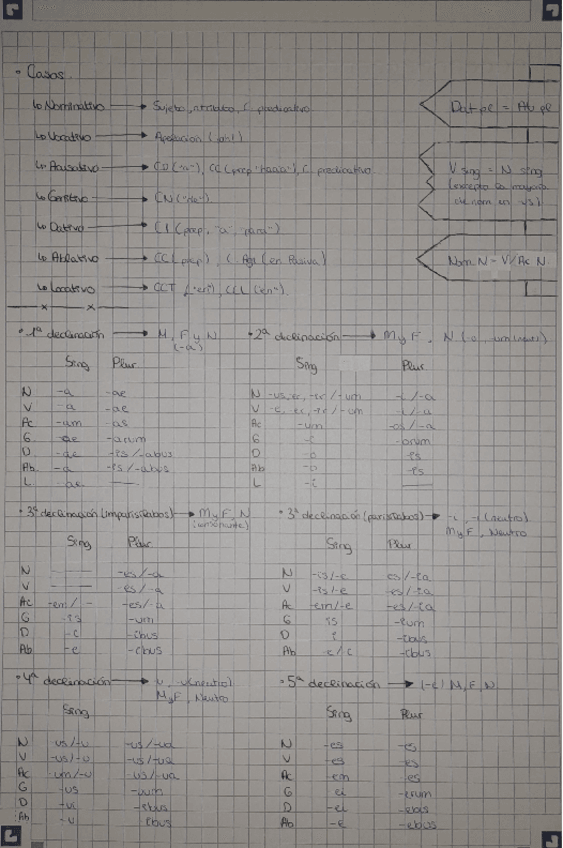 • Casos
↳ Nominativo → Sujeto, atributo, C predicativo
↳ Vocativo → Apelación
↳ Acusativo → CD ("a"), CC (prep "hacia"), C predicativo
↳ Genitivo → CN ("de")
↳ Dativo → CI (prep. "a", "para")
↳ Ablativo → CC (prep), C Age (en Pasiva)
↳ Locativo → CCT ("en"), CCL ("en")
Dat pl = Ab pl
V sing = N sing
(excepto la mayoría
de nom en us)
Nom. N = V/Ac N.
• 1ª declinación → M, F y N
(-a)
Sing Plur
N -a -ae
V -a -ae
Ac -am -as
G -ae -arum
D -ae -is/-abus
Ab -a -is/-abus
L -ae —
• 2ª declinación → M y F, N
Sing Plur
N -us, er, -ir/-um -i/-a
V -e, er, -ir/-um -i/-a
Ac -um -os/-a
G -i -orum
D -o -is
Ab -o -is
L -i —
• 3ª declinación (imparisílabos) → M y F, N
(consonante)
Sing Plur
N — -es/-a
V — -es/-a
Ac -em/- -es/-a
G -is -um
D -i -ibus
Ab -e -ibus
• 3ª declinación (parisílabos) → -i, -i (neutro)
M y F, Neutro
Sing Plur
N -is/-e es/-ia
V -is/-e es/-ia
Ac -em/-e -es/-ia
G is -ium
D i -ibus
Ab e/i -ibus
• 4ª declinación → u, u (neutro)
M y F, Neutro
Sing Plur
N -us/-u -us/-ua
V -us/-u -us/-ua
Ac um/-u us/-ua
G -us -uum
D -ui -ibus
Ab -u ibus
• 5ª declinación → (-e) M, F, N
Sing Plur
N -es -es
V -es -es
Ac -em -es
G ei -erum
D -ei -ebus
Ab -e -ebus